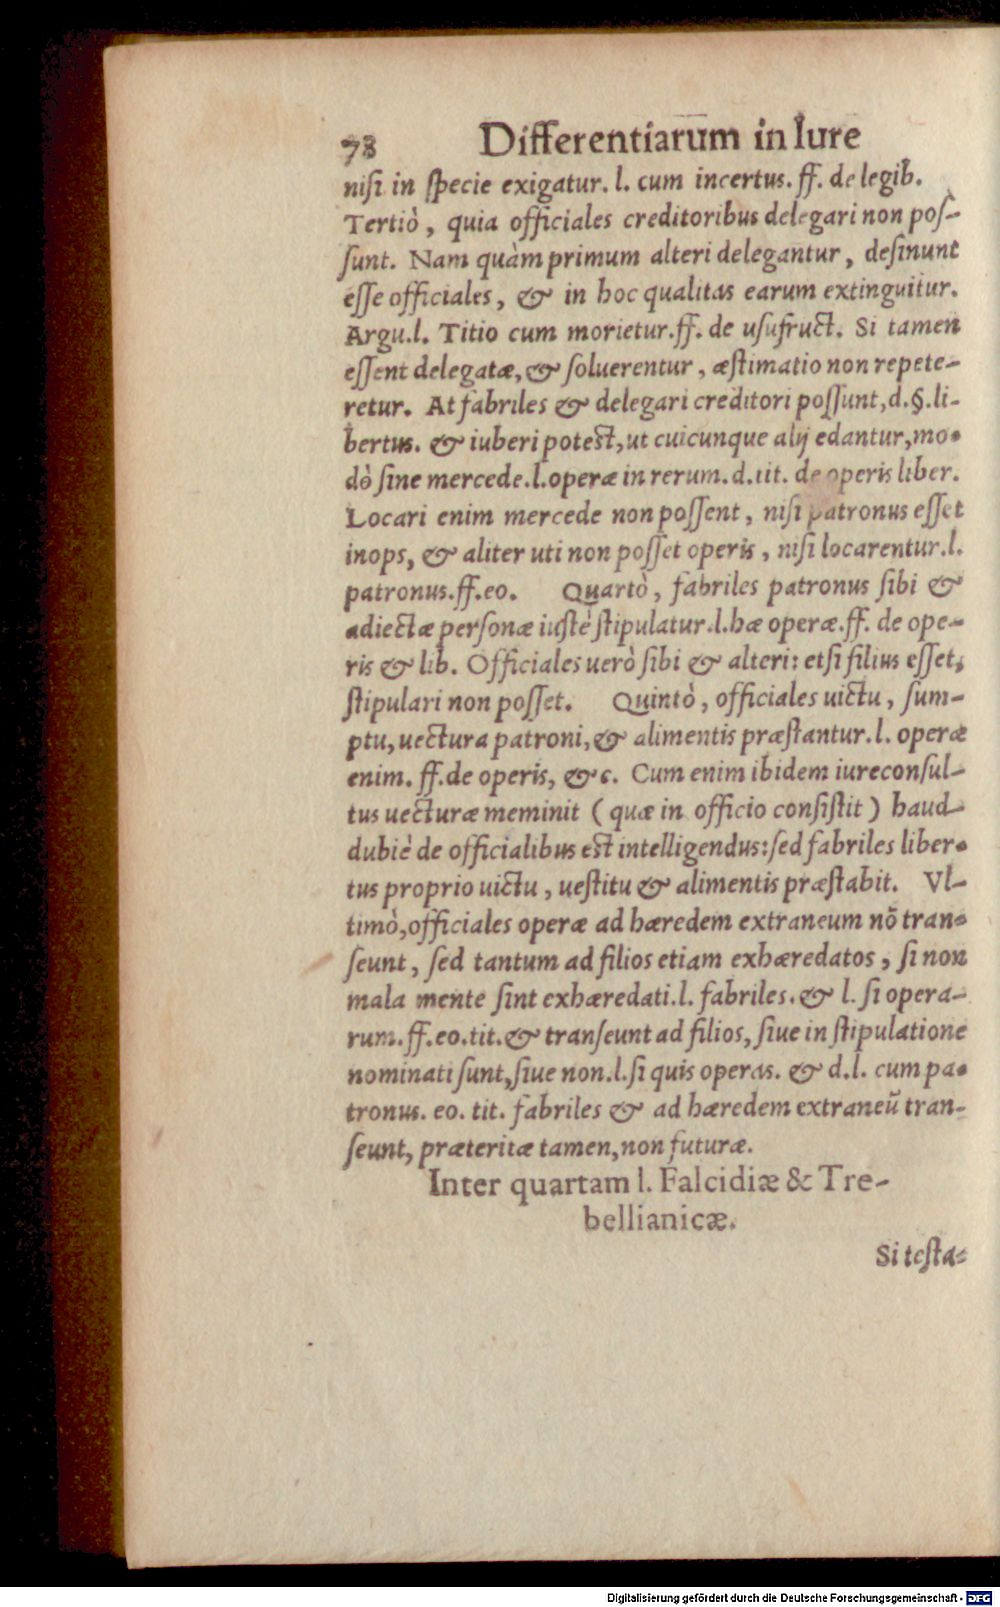 78 Differentiarum in Iure
nisi in specie exigatur. l. cum incertus. ff. de legib.
Tertiò, quia officiales creditoribus delegari non pos-
sunt. Nam quàm primum alteri delegantur, desinunt
esse officiales, & in hoc qualitas earum extinguitur.
Argu. l. Titio cum morietur. ff. de usufruct. Si tamen
essent delegatæ, & soluerentur, æstimatio non repete-
retur. At fabriles & delegari creditori possunt, d. §. li-
bertus. & iuberi potest, ut cuicunque alij edantur, mo-
dò sine mercede. l. operæ in rerum. d. tit. de operis liber.
Locari enim mercede non possent, nisi patronus esset
inops, & aliter uti non posset operis, nisi locarentur. l.
patronus. ff. eo. Quartò, fabriles patronus sibi &
adiectæ personæ iustè stipulatur. l. hæ operæ. ff. de ope-
ris & lib. Officiales uerò sibi & alteri: etsi filius esset,
stipulari non posset. Quintò, officiales uictu, sum-
ptu, uectura patroni, & alimentis præstantur. l. operæ
enim. ff. de operis, &c. Cum enim ibidem iureconsul-
tus uecturæ meminit (quæ in officio consistit) haud-
dubiè de officialibus est intelligendus: sed fabriles liber-
tus proprio uictu, uestitu & alimentis præstabit. Vl-
timò, officiales operæ ad hæredem extraneum nō tran-
seunt, sed tantum ad filios etiam exhæredatos, si non
mala mente sint exhæredati. l. fabriles. & l. si opera-
rum. ff. eo. tit. & transeunt ad filios, siue in stipulatione
nominati sunt, siue non. l. si quis operas. & d. l. cum pa-
tronus. eo. tit. fabriles & ad hæredem extraneū tran-
seunt, præteritæ tamen, non futuræ.
Inter quartam l. Falcidiæ & Tre-
bellianicæ.
Si testa-
Digitalisierung gefördert durch die Deutsche Forschungsgemeinschaft - DFG